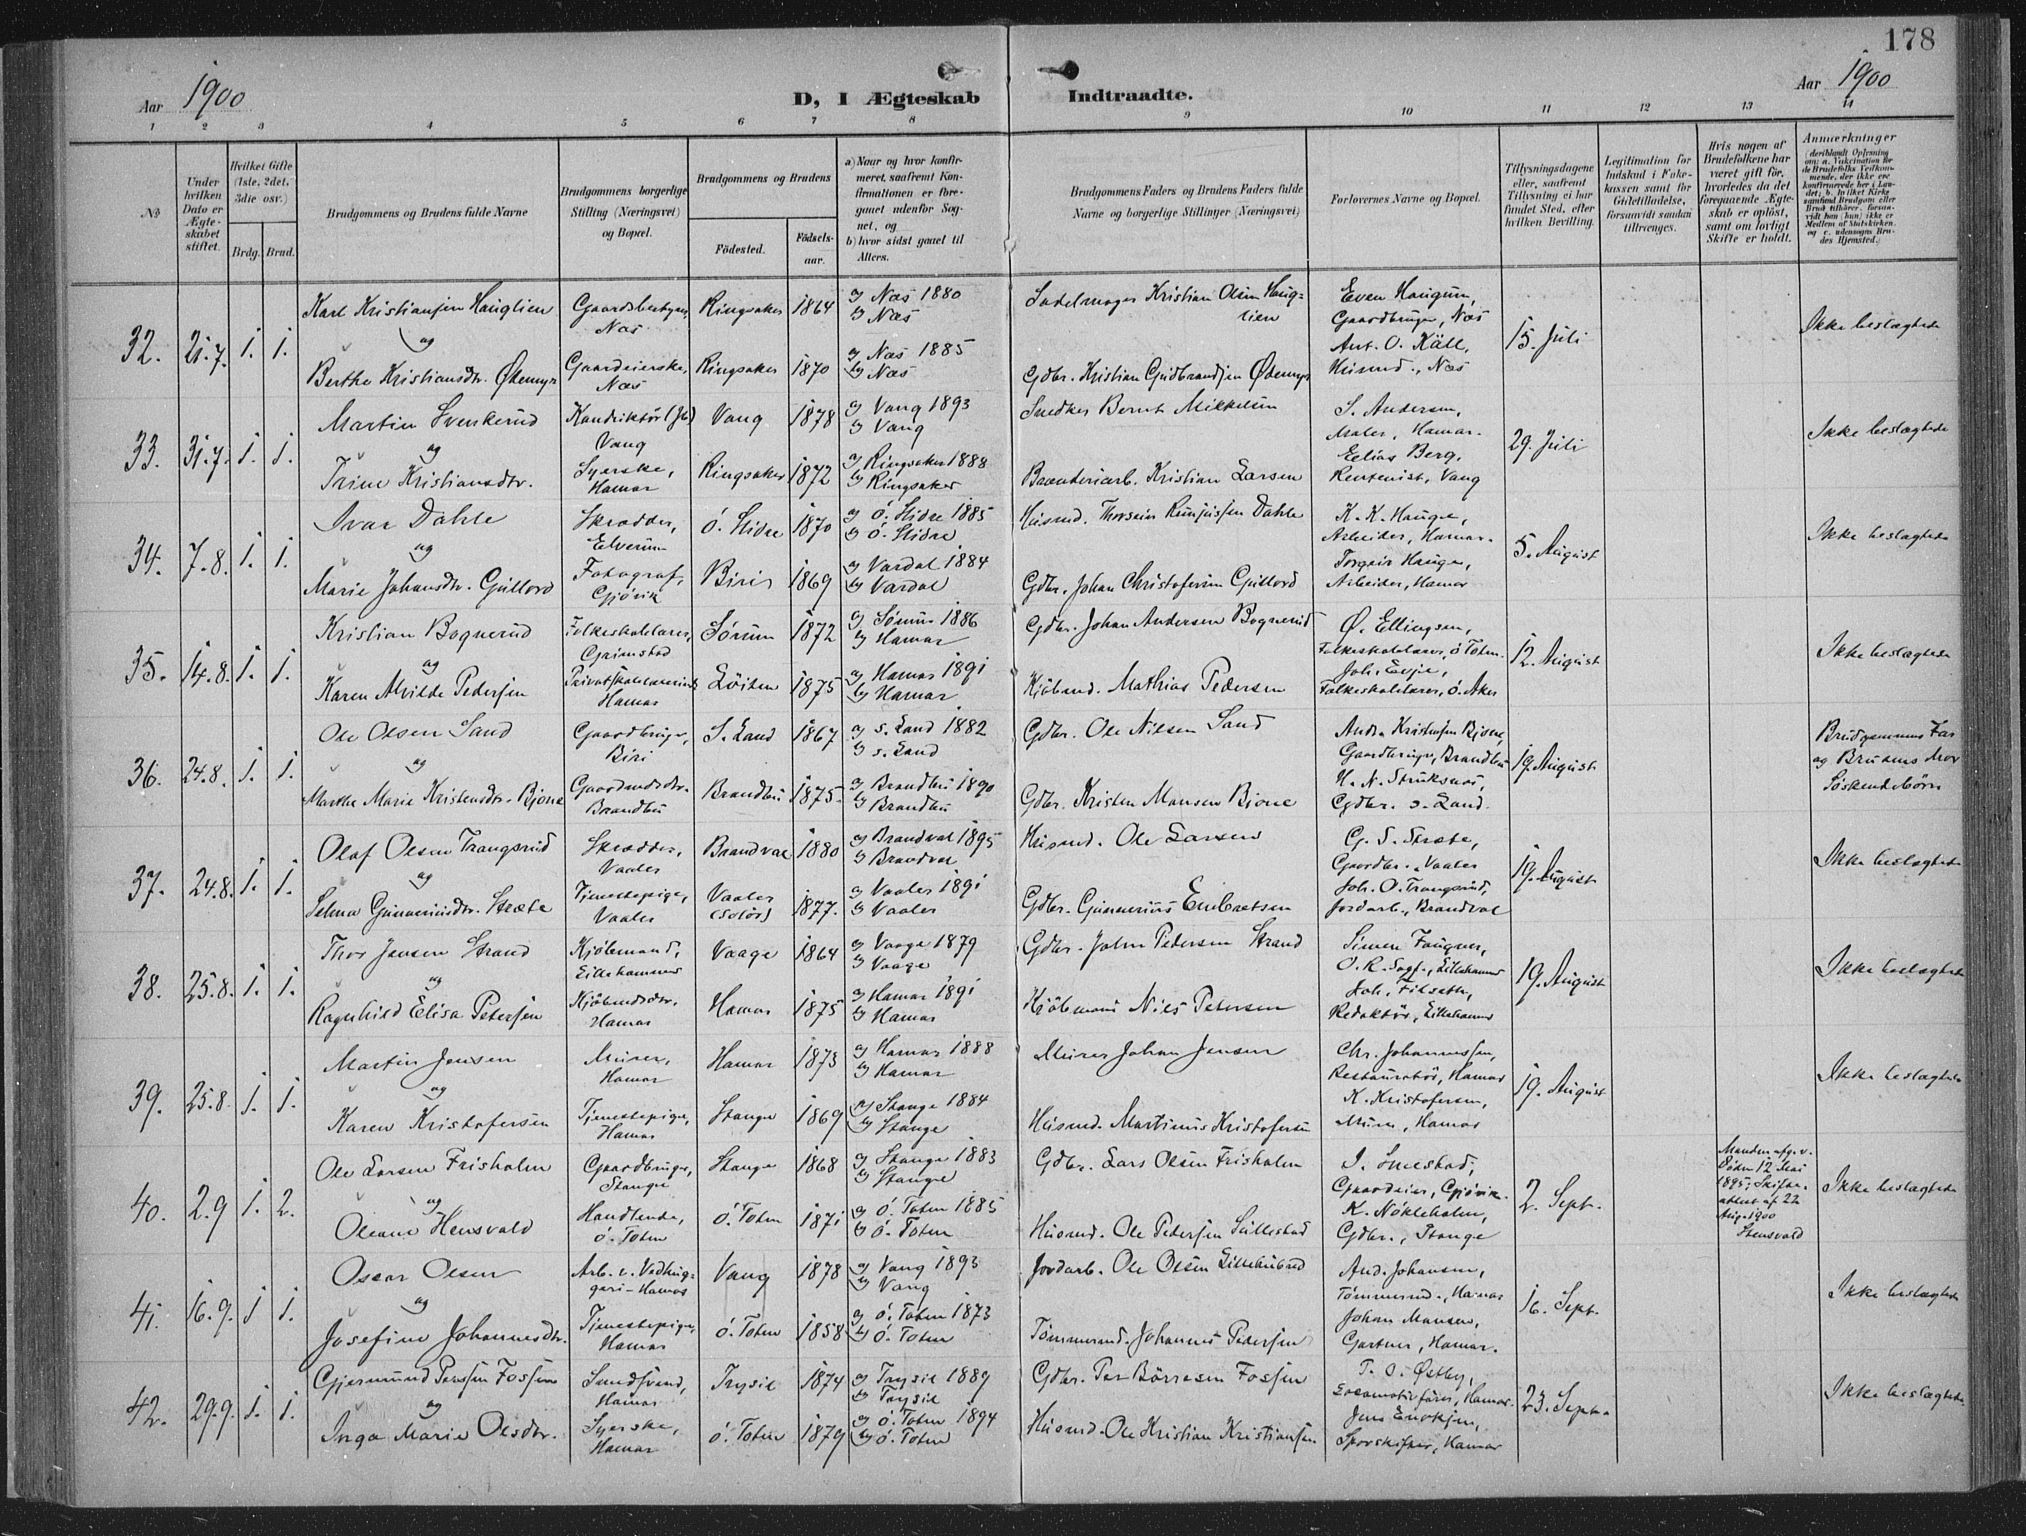 178
Aar 1900
D, I Ægteskab Indtraadte.
Aar 1900
1 2 3 4 5 6 7 8 9 10 11 12 13 14
No
Under hvilken Dato er Ægteskabet stiftet.
Hvilket Gifte (1ste, 2det, 3die osv.)
Brdg. Brud.
Brudgommens og Brudens fulde Navne
Brudgommens borgerlige Stilling (Næringsvei) og Bopæl.
Brudgommens og Brudens
Fødested.
Fødselsaar.
a) Naar og hvor konfirmeret, saafremt Konfirmationen er foregaaet udenfor Sognet, og
b) hvor sidst gaaet til Alters.
Brudgommens Faders og Brudens Faders fulde Navne og borgerlige Stillinger (Næringsvei)
Forlovernes Navne og Bopæl.
Tillysningsdagene eller, saafremt Tillysning ei har fundet Sted, efter hvilken Bevilling.
Legitimation for Indskud i Enkekassen samt for Giftetilladelse, forsaavidt saadan tiltrænges.
Hvis nogen af Brudefolkene har været gift før, hvorledes da det foregaaende Ægteskab er opløst, samt om lovligt Skifte er holdt.
Anmærkninger
32. 21.7. 1. 1.
Karl Kristiansen Hauglien Gaardsbestyrer Næs Ringsaker 1864 a) Næs 1880 b) Næs
Sadelmager Kristian Olsen Hauglien
og
Berthe Kristiansdtr. Ødemyr Gaardeierske, Næs Ringsaker 1870 a) Næs 1885 b) Næs
Gdbr. Kristian Gudbrandsen Ødemyr
Even Haugum, Gaardbruger, Næs
Ant. O. Käll, Husmd., Næs
15. Juli
Ikke beslægtede
33. 31.7. 1. 1.
Martin Svenkerud Konduktør (Jb) Vang Vang 1878 a) Vang 1893 b) Vang
Snedker Bernt Mikkelsen
og
Trine Kristiansdtr. Syerske, Hamar Ringsaker 1872 a) Ringsaker 1888 b) Ringsaker
Brænderiarb. Kristian Larsen
S. Andersen, Maler, Hamar.
Elias Berg, Rentenist, Vang
29. Juli
Ikke beslægtede
34. 7.8. 1. 1.
Ivar Dahle Skrædder, Elverum Ö. Slidre 1870 a) Ö. Slidre 1885 b) Ö. Slidre
Husmd. Thorstein Dahle
og
Marie Johansdtr. Gullord Fotograf, Gjøvik Biri 1869 a) Vardal 1884 b) Vardal
Gdbr. Johan Christofersen Gullord
K. K. Hauge, Arbeider, Hamar.
Torgeir Hauge, Arbeider, Hamar
5. August
Ikke beslægtede
35. 14.8. 1. 1.
Kristian Bognerud Folkeskolelærer, Grimstad Sørum 1872 a) Sørum 1886 b) Hamar
Gdbr. Johan Andersen Bognerud
og
Karen Alvilde Pedersen Privatskolelærerinde Hamar Løiten 1875 a) Hamar 1891 b) Hamar
Kjöbmd. Mathias Pedersen
Ø. Ellingsen, Folkeskolelærer, Ö Toten.
Joh. Evje, Folkeskolelærer, Ö. Aker
12. August
Ikke beslægtede
36. 24.8. 1. 1.
Ole Olsen Sand Gaardbruger, Biri S. Land 1867 a) S. Land 1882 b) S. Land
Gdbr. Ole Nilsen Sand
og
Marthe Marie Kristensdtr. Bjone Gaardmandsdtr. Brandbu Brandbu 1875. a) Brandbu 1890 b) Brandbu
Gdbr. Kristen Monsen Bjone
Andr. Kristensen Bjone, Gaardbruger, Brandbu
H. N. Struksnæs, Gdbr. S. Land.
19. August
Brudgommens Far og Brudens Mor Söskendebörn
37. 24.8. 1. 1.
Olaf Olsen Trangsrud Skrædder, Vaaler Brandval 1880 a) Brandval 1895 b) Brandval
Husmd. Ole Larsen
og
Selma Gunneriusdtr. Stræte Tjenestepige, Vaaler Vaaler (Solør) 1877. a) Vaaler 1891 b) Vaaler
Gdbr. Gunnerius Embretsen
G. S. Stræte, Gaardbr., Vaaler
Joh. O. Trangsrud, Jordarb., Brandval
19. August
Ikke beslægtede
38. 25.8. 1. 1.
Thor Jansen Strand Kjöbmand, Lillehammer Vaage 1864 a) Vaage 1879 b) Vaage
Gdbr. John Pedersen Strand
og
Ragnhild Elisa Petersen Kjöbmdsdtr. Hamar Hamar 1875 a) Hamar 1891 b) Hamar
Kjöbmand Niels Petersen
Simen Fougner, O. R. Sagf., Lillehammer
Joh. Filseth, Redaktör, Lillehammer
19. August
Ikke beslægtede
39. 25.8. 1. 1.
Martin Jensen Murer, Hamar Hamar 1873 a) Hamar 1888 b) Hamar
Murer Johan Jensen
og
Karen Kristofersen Tjenestepige, Hamar Stange 1869 a) Stange 1884 b) Stange
Husmd. Martinus Kristofersen
Chr. Johannessen, Restauratör, Hamar
K. Kristofersen, Murer, Hamar
19. August
Ikke beslægtede
40. 2.9 1. 2.
Ole Larsen Frisholm Gaardbruger, Stange Stange 1868 a) Stange 1883 b) Stange
Gdbr. Lars Olsen Frisholm
og
Oleane Hensvald Handlende, Ö. Toten Ö. Toten 1871 a) Ö. Toten 1885 b) Ö. Toten
Husmd. Ole Pedersen Sullestad
J. Smestad, Gaardeier, Gjøvik.
K. Nökleholm, Gdbr., Stange
2. Sept.
Manden afg. v. Døden 12 Mai 1895; Skifteattest af 22 Aug. 1900
Ikke beslægtede
41. 16.9. 1 1.
Oscar Olsen Arb. v. Vadhuggeri - Hamar Vang 1878 a) Vang 1893 b) Vang
Jordarb. Ole Olsen Lillehusend
og
Josefine Johannesdtr. Tjenestepige, Hamar Ö. Toten 1858 a) Ö. Toten 1873 b) Ö. Toten
Tömmermd. Johannes Pedersen
And. Johansen, Tömmermd., Hamar
Johan Monsen, Gartner, Hamar.
16. Sept.
Ikke beslægtede
42. 29.9. 1. 1.
Gjermund Persen Fossum Smedsvend, Hamar Trysil 1874 a) Trysil 1889 b) Trysil
Gdbr. Per Börresen Fossum
og
Inga Marie Olsdtr. Syerske, Hamar Ö. Toten 1879 a) Ö. Toten 1894 b) Ö. Toten
Husmd. Ole Kristian Kristiansen
P. O. Østby, Locomotivförer, Hamar.
Jens Enoksen, Sporskifter, Hamar
23. Sept.
Ikke beslægtede